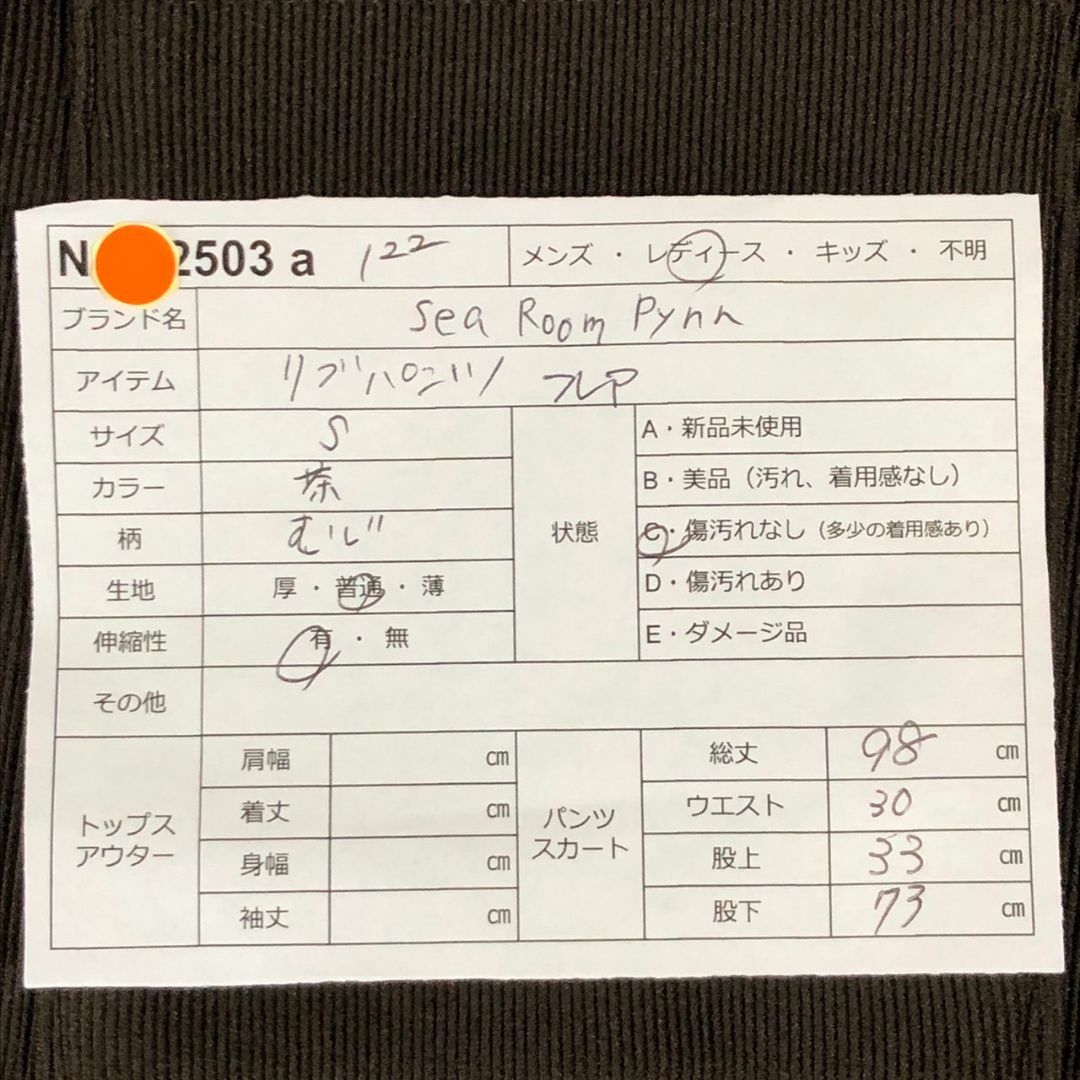 N 2503 a 122 メンズ ・ レディース ・ キッズ ・ 不明
ブランド名 Sea Room Pynn
アイテム リブパンツ フレア
サイズ S
カラー 茶
柄 むじ
生地 厚 ・ 普通 ・ 薄
伸縮性 有 ・ 無
状態
A・新品未使用
B・美品（汚れ、着用感なし）
C・傷汚れなし（多少の着用感あり）
D・傷汚れあり
E・ダメージ品
その他
トップス
アウター
肩幅 cm
着丈 cm
身幅 cm
袖丈 cm
パンツ
スカート
総丈 98 cm
ウエスト 30 cm
股上 33 cm
股下 73 cm